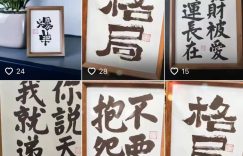 24
格局
28
財被愛
運長在
15
你說天
我就
不要
抱怨
格局